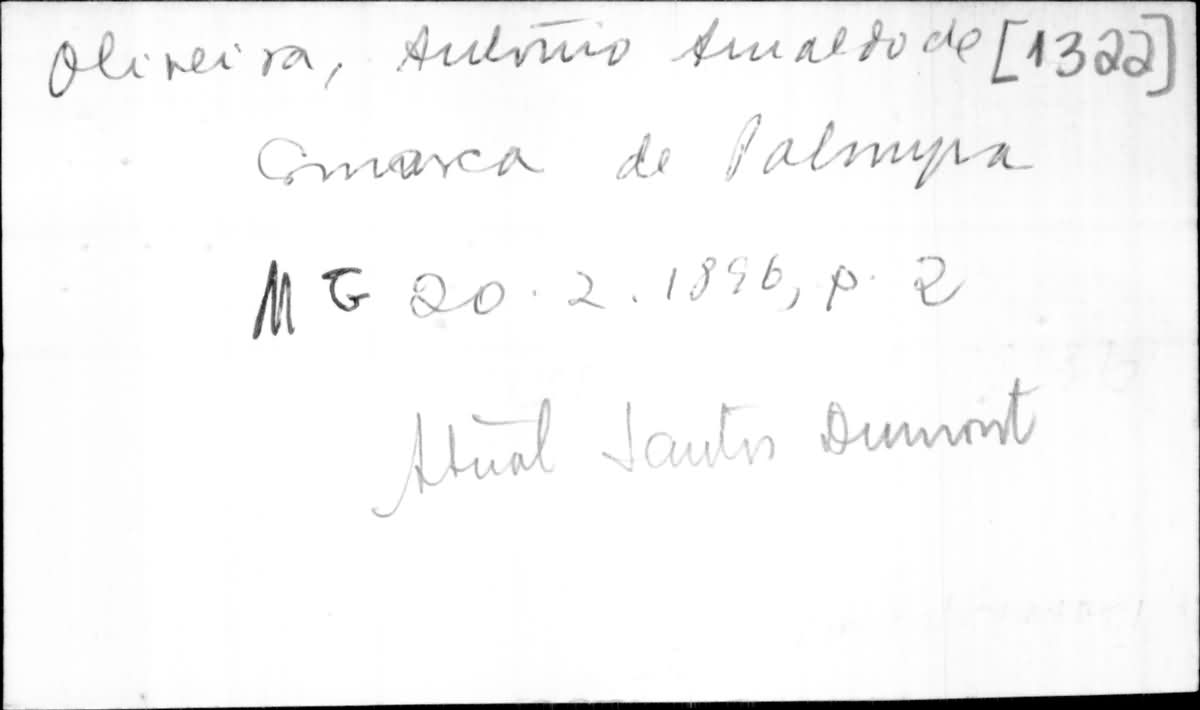 Oliveira, António Arnaldo de [1322]
Comarca de Palmyra
MG 20.2.1896, p. 2
Atual Santos Dumont